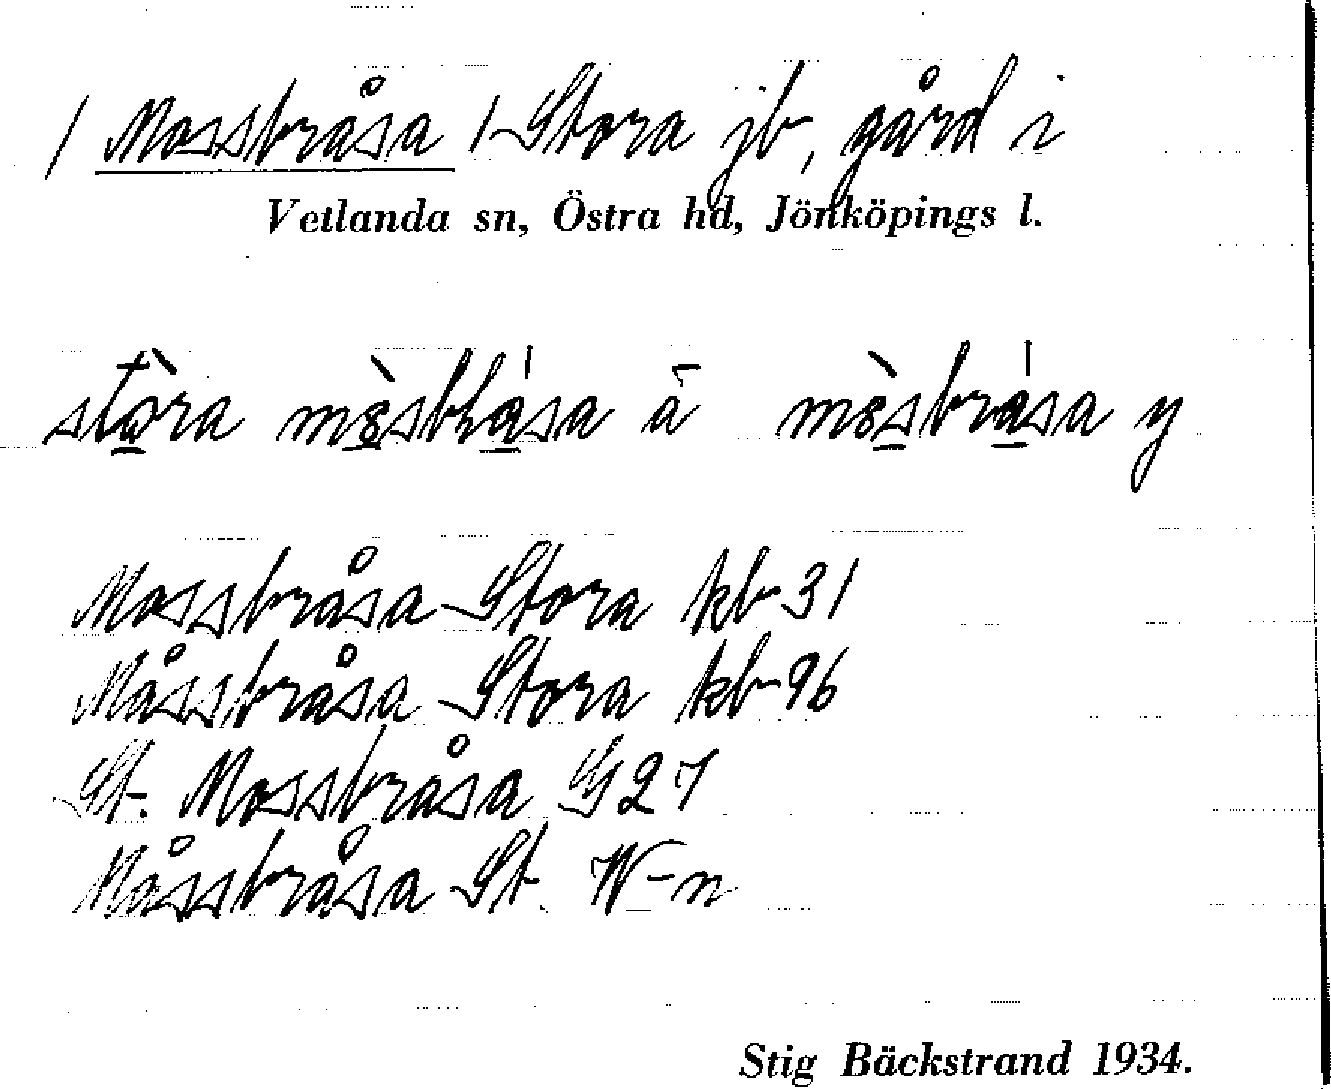 / Mossbråsa / Stora jb, gård i
Vetlanda sn, Östra hd, Jönköpings l.
stòra mòsbråsa ä mòsbråsa y
Mossbråsa Stora kb 31
Måssbråsa Stora kb 96
St. Mossbråsa G 27
Måssbråsa St. W-n
Stig Bäckstrand 1934.